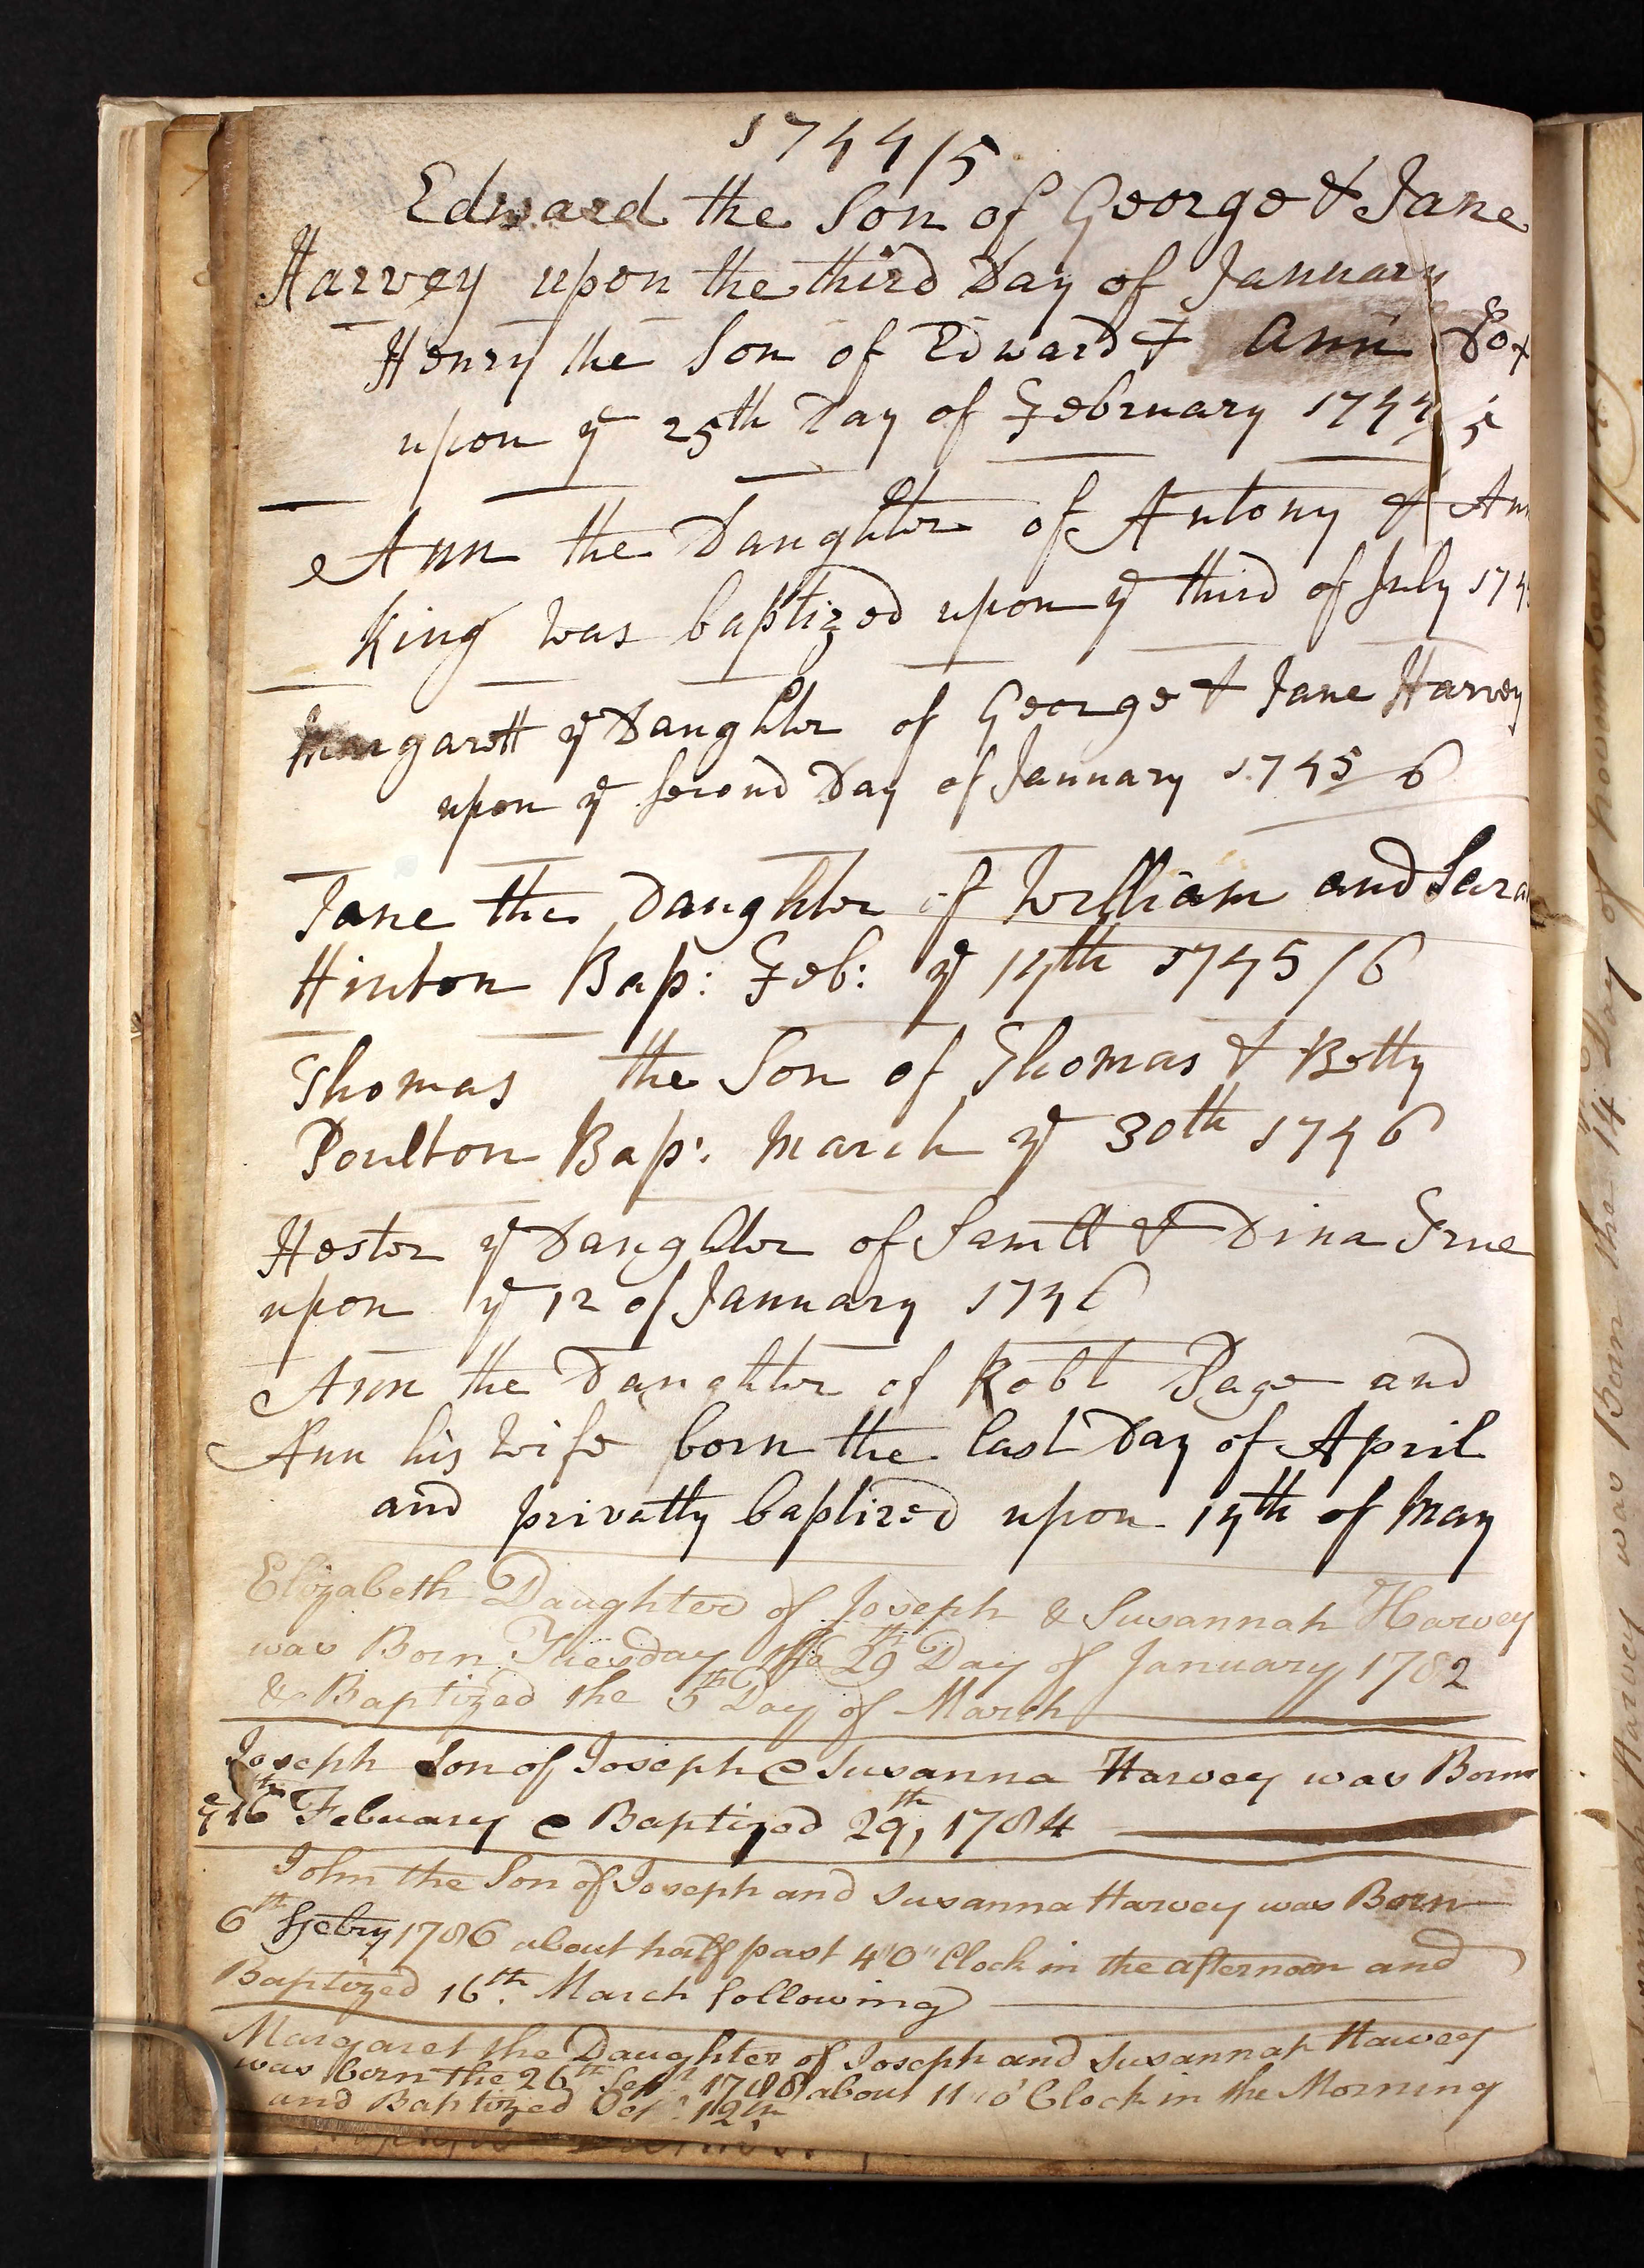 1744/5
Edward the Son of George & Jane
Harvey upon the third Day of January
Henry the Son of Edward & Ann
upon ye 25th Day of February 1744/5
Ann the Daughter of Antony & Ann
King was baptized upon ye third of July 174
Margarett ye Daughter of George & Jane Harvey
upon ye second Day of January 1745/6
Jane the Daughter of William and Sara
Hinton Bap: Feb: ye 14th 1745/6
Thomas the Son of Thomas & Betty
Poulton Bap: March ye 30th 1746
Hester ye Daughter of Samll & Dina True
upon ye 12 of January 1746
Ann the Daughter of Robt Page and
Ann his Wife born the last Day of April
and privatly baptized upon 14th of May
Elizabeth Daughter of Joseph & Susannah Harvey
was Born Tuesday the 29th Day of January 1782
& Baptized the 5th Day of March
Joseph Son of Joseph & Susanna Harvey was Born
ye 16th Febuary & Baptized 29th, 1784
John the Son of Joseph and Susanna Harvey was Born
6th Febry 1786 about half past 4"O" Clock in the afternoon and
Baptized 16th March following
Margaret the Daughter of Joseph and Susannah Harvey
was born the 26th Sepr 1788 about 11 "o' Clock in the Morning
and Baptized Octr 12th